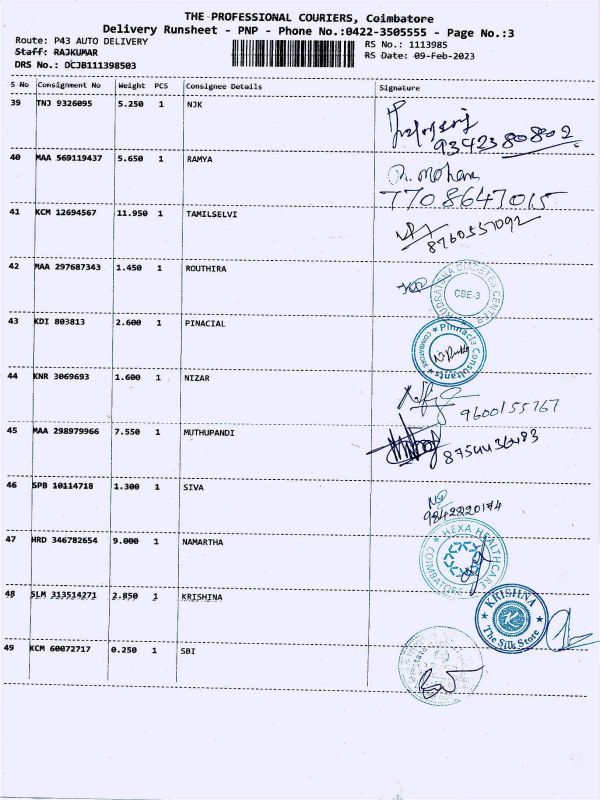 THE PROFESSIONAL COURIERS, Coimbatore
Delivery Runsheet - PNP - Phone No.:0422-3505555 - Page No.:3
Route: P43 AUTO DELIVERY
RS No.: 1113985
Staff: RAJKUMAR
RS Date: 09-Feb-2023
DRS No.: DCJB111398503
S No Consignment No Weight PCS Consignee Details Signature
39 TNJ 9326095 5.250 1 NJK
9342380802
40 MAA 569119437 5.650 1 RAMYA
Mohan
7708647015
41 KCM 12694567 11.950 1 TAMILSELVI
8760557092
42 MAA 297687343 1.450 1 ROUTHIRA
DIABETES CENTER
CBE-3
43 KDI 803813 2.600 1 PINACIAL
Pinnacle Consultants
44 KNR 3069693 1.600 1 NIZAR
9600155767
45 MAA 298979966 7.550 1 MUTHUPANDI
46 SPB 10114718 1.300 1 SIVA
9842220174
47 HRD 346782654 9.000 1 NAMARTHA
HEXA HEALTHCARE
48 SLM 313514271 2.850 1 KRISHINA
KRISHNA
The Silk Store
49 KCM 60072717 0.250 1 SBI